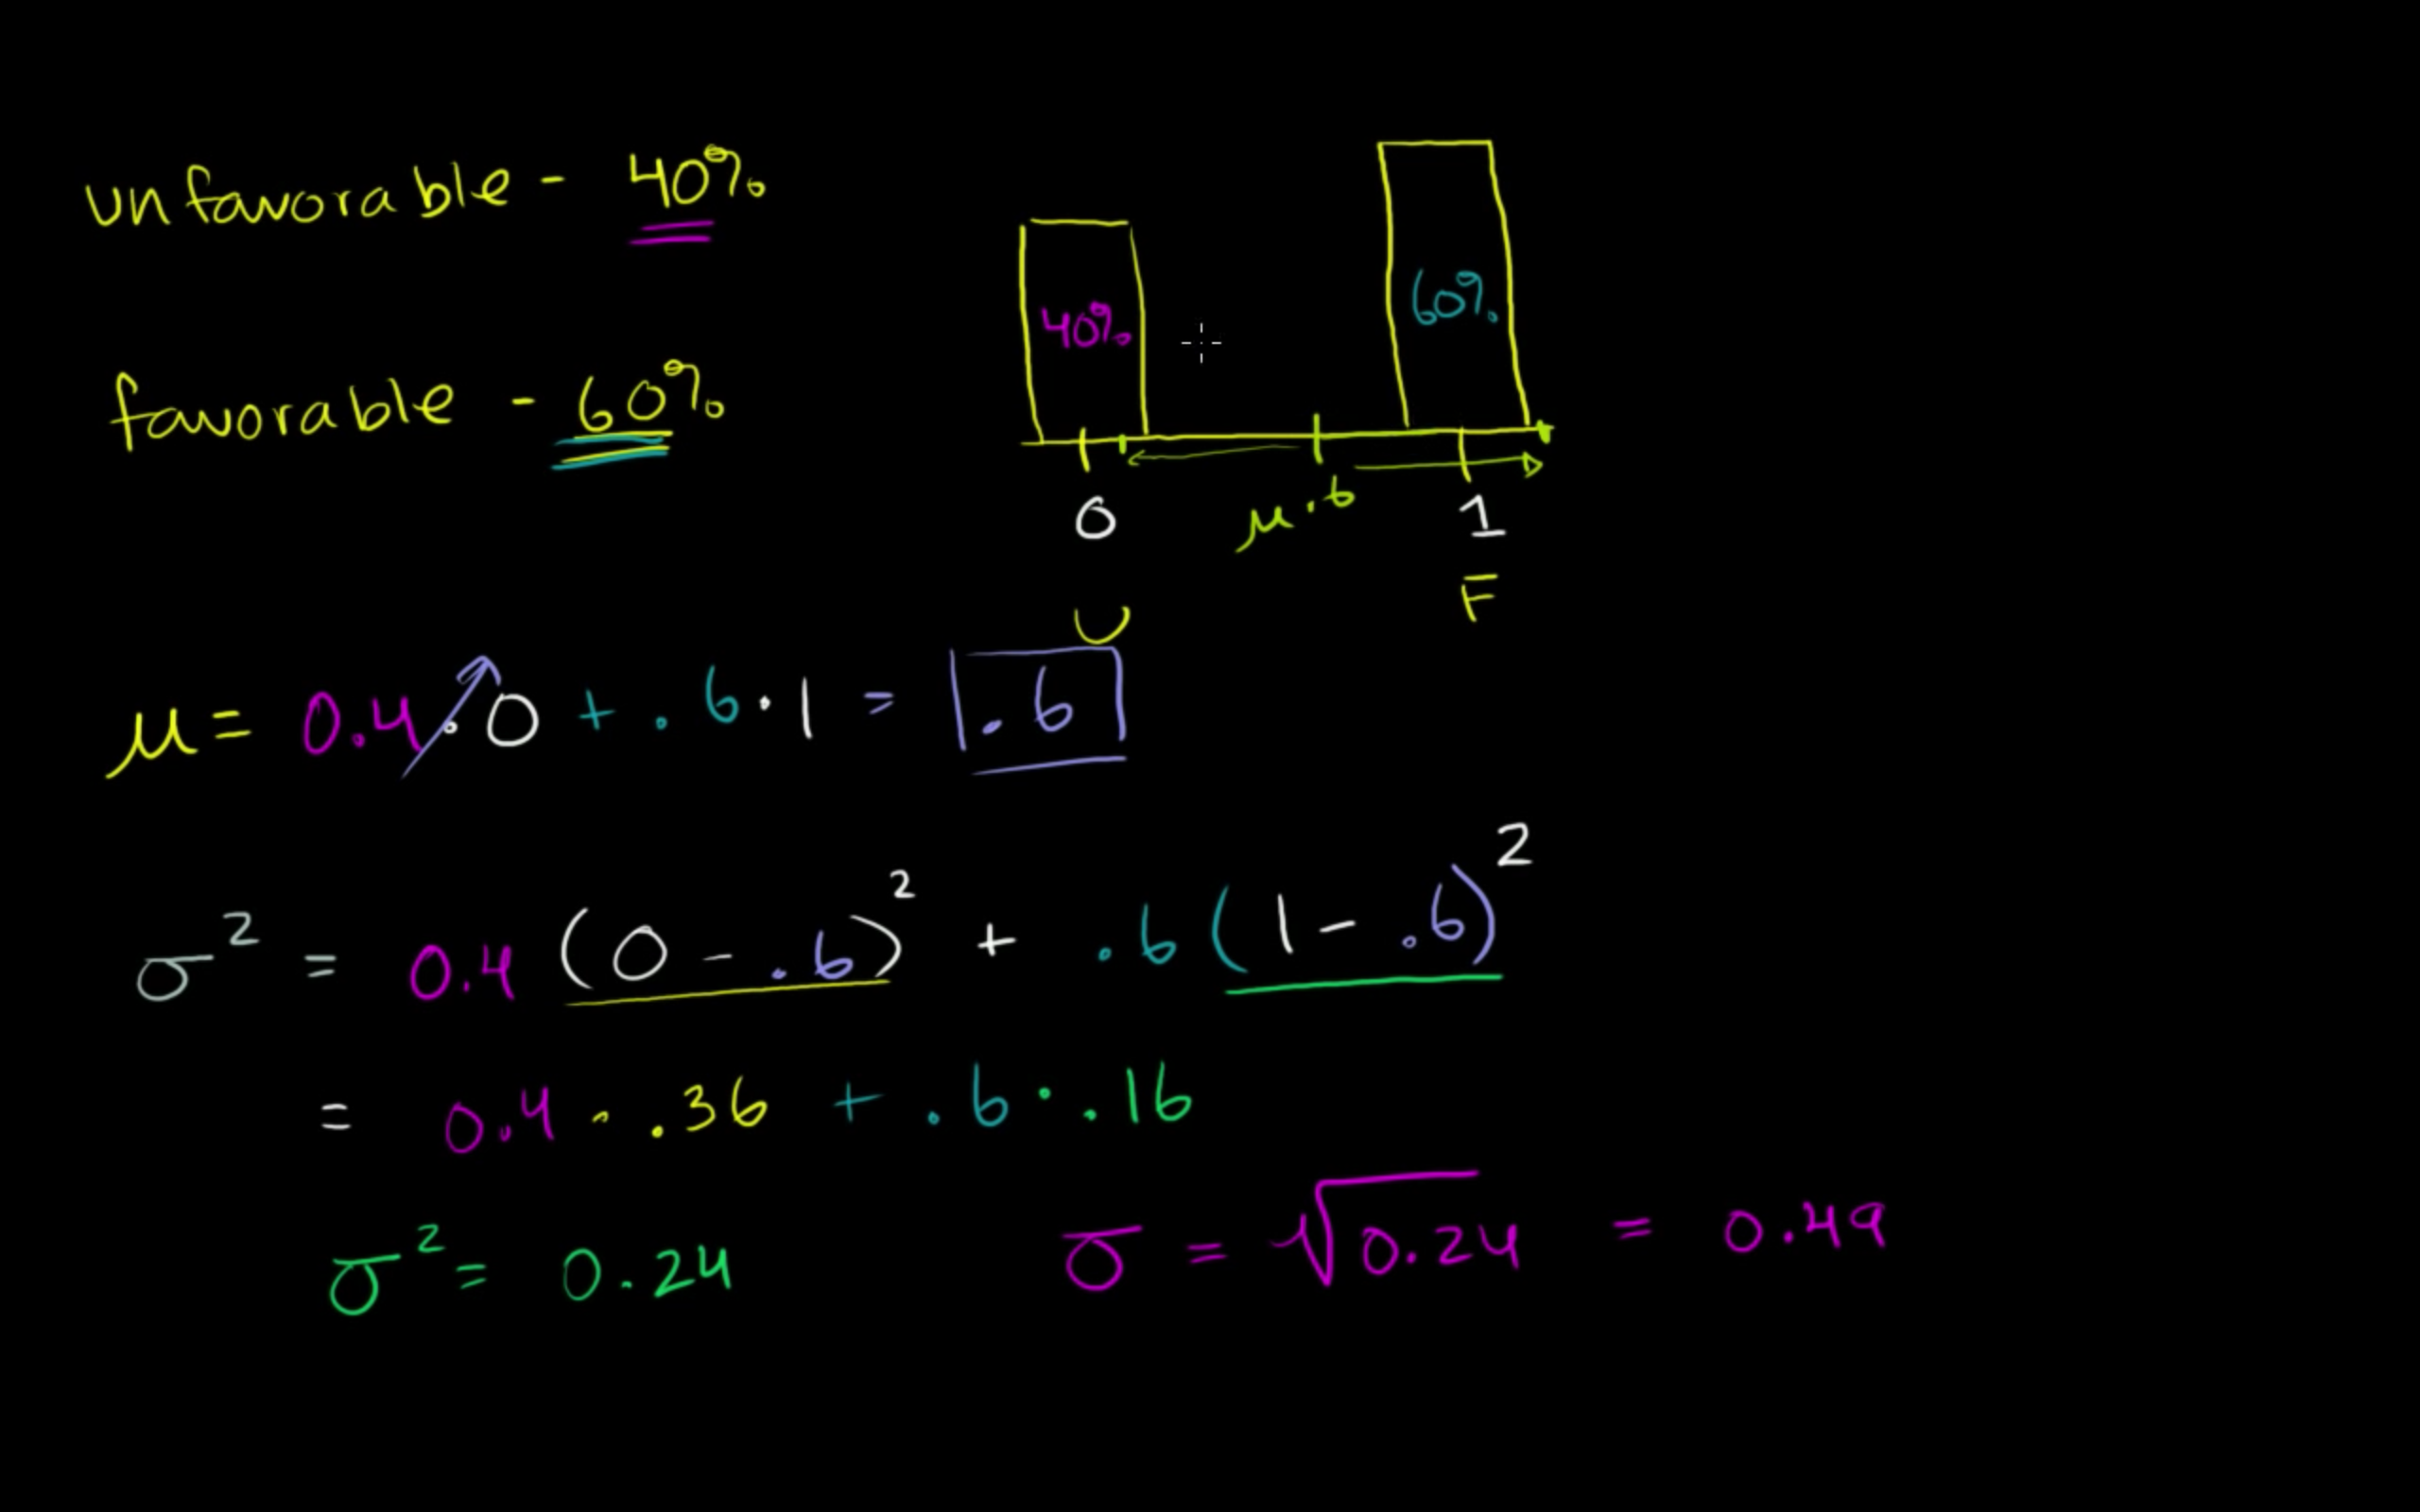 unfavorable - 40%
favorable - 60%
40%
60%
0
μ .6
1
U
F
μ = 0.4 · 0 + .6 · 1 = .6
σ² = 0.4 (0 - .6)² + .6 (1 - .6)²
= 0.4 · .36 + .6 · .16
σ² = 0.24
σ = √0.24 = 0.49